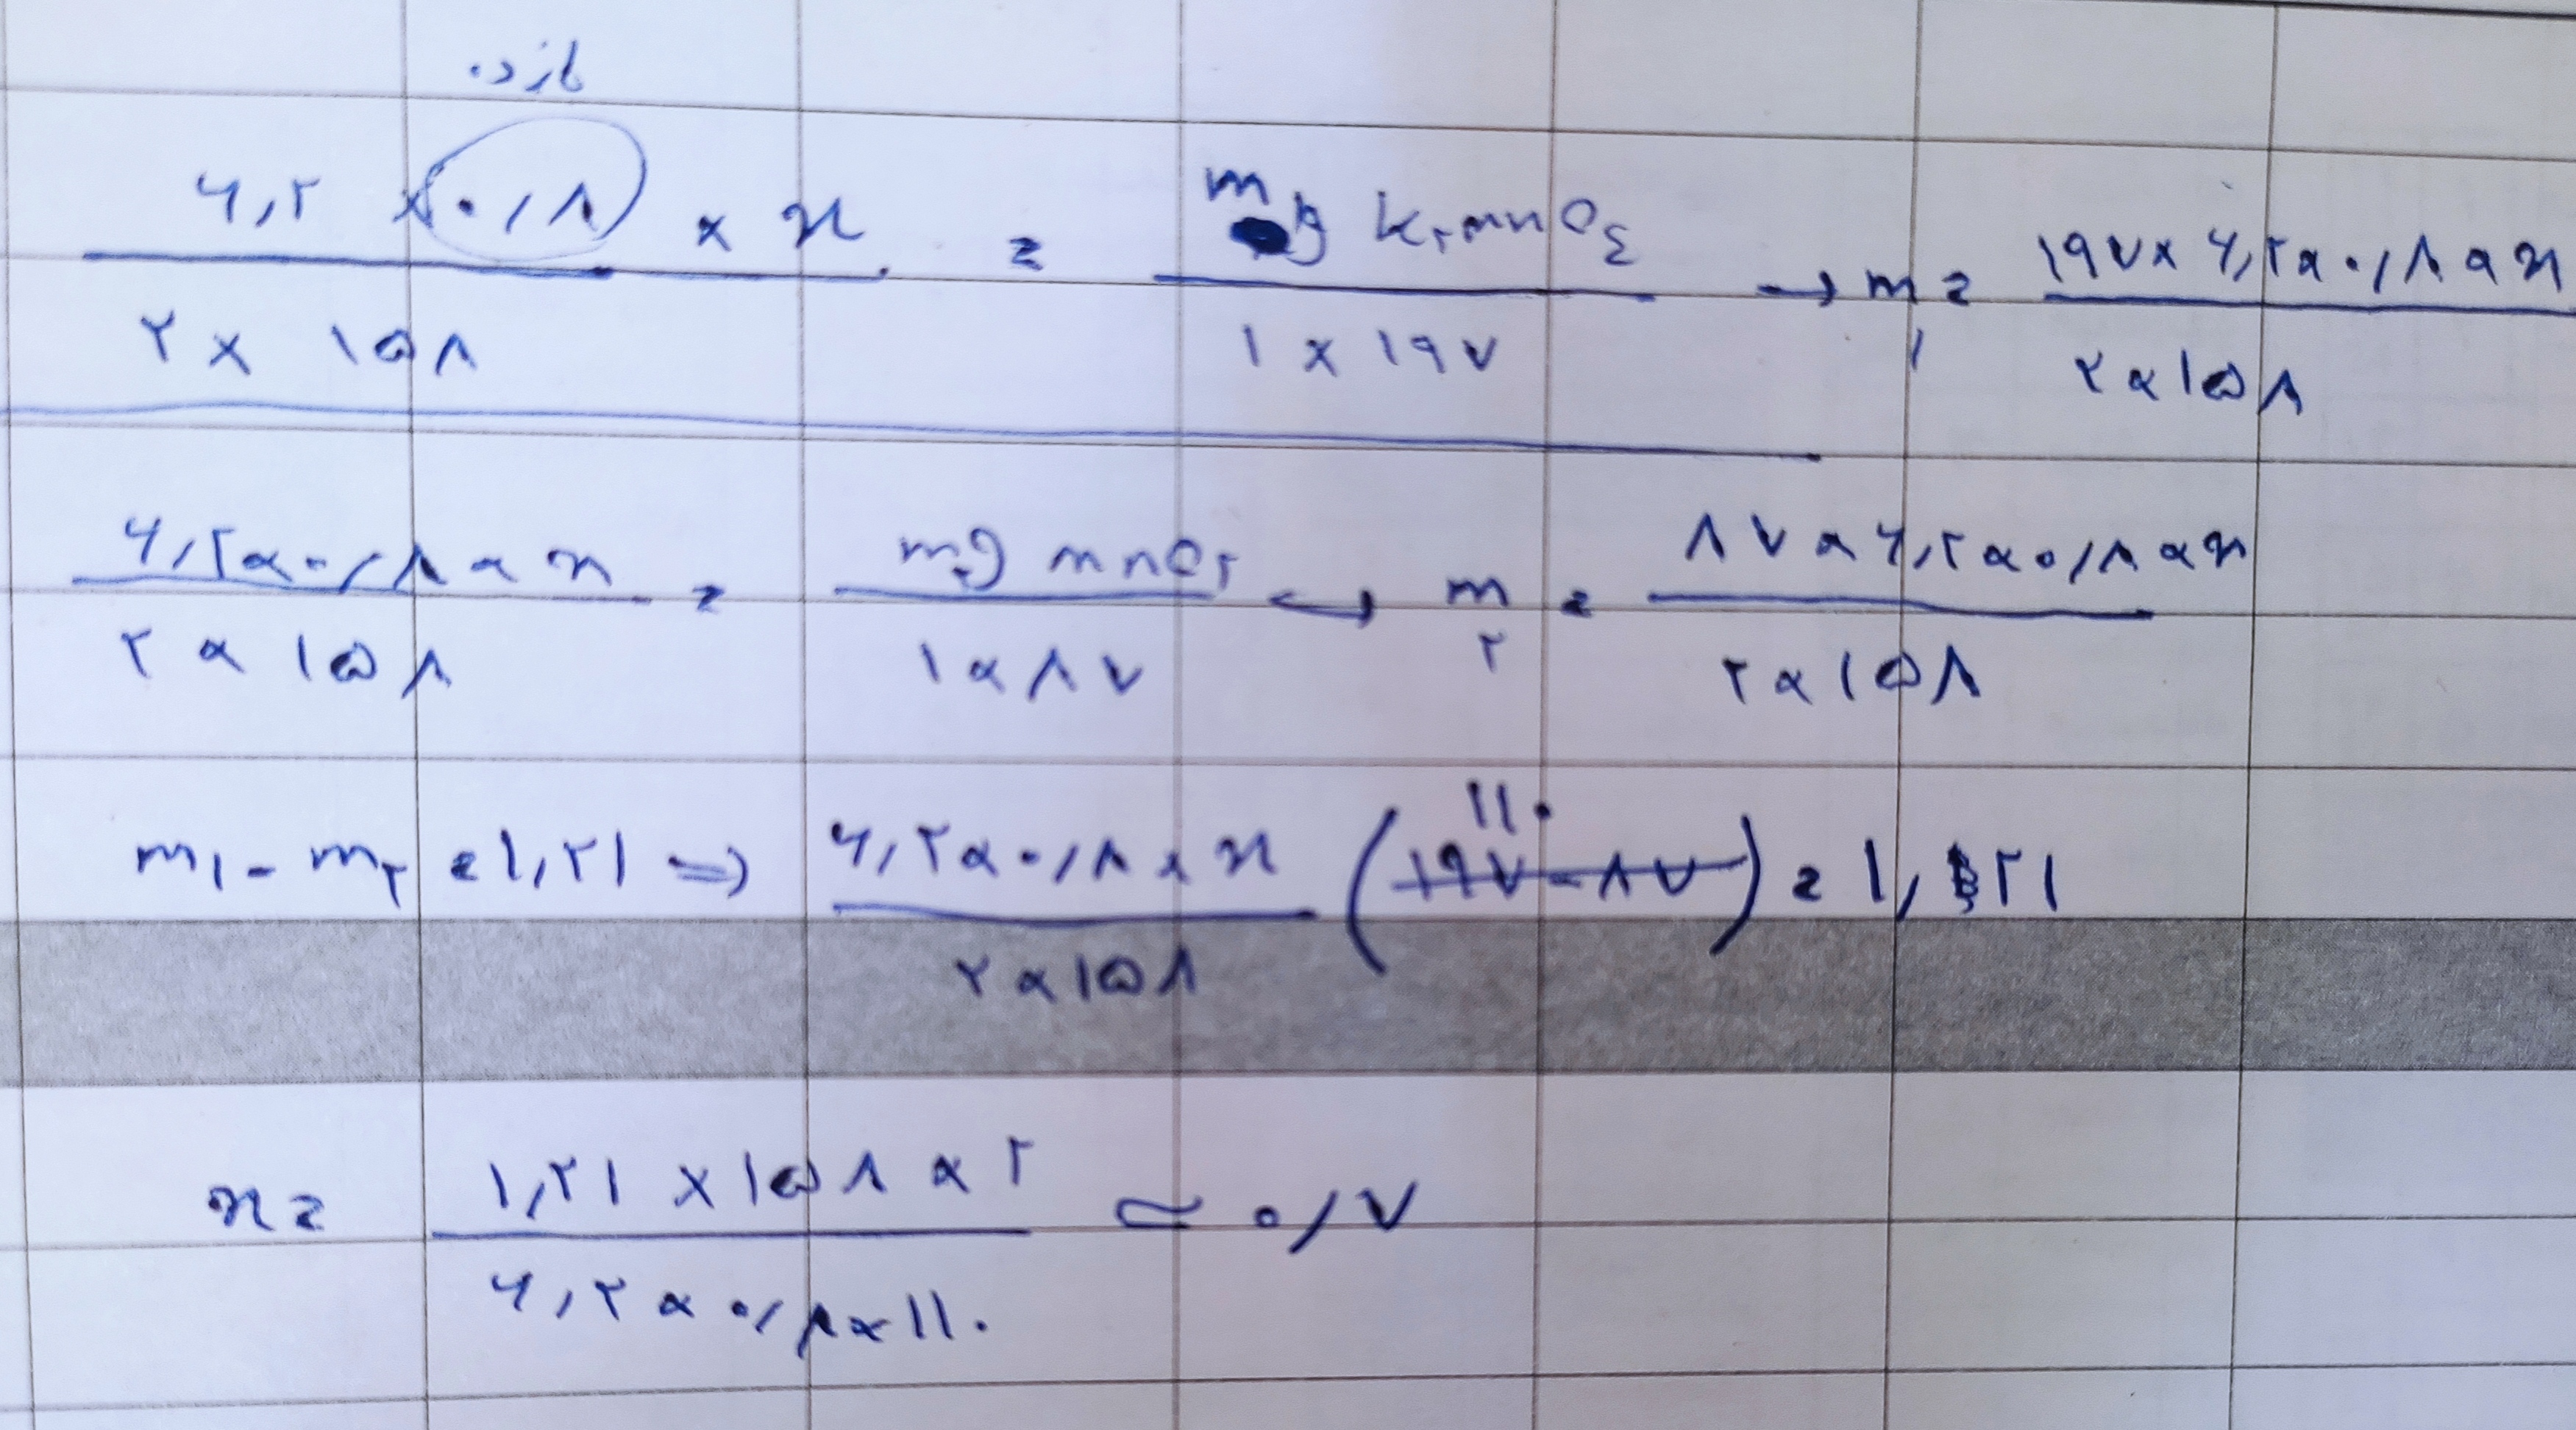 بازده
۶,۲ × ۰/۸ × x / ۲ × ۱۵۸ = m g K۲MnO۴ / ۱ × ۱۹۷ → m۱ = ۱۹۷ × ۶,۲ × ۰/۸ × x / ۲ × ۱۵۸
۶,۲ × ۰/۸ × x / ۲ × ۱۵۸ = m g MnO۲ / ۱ × ۸۷ → m۲ = ۸۷ × ۶,۲ × ۰/۸ × x / ۲ × ۱۵۸
m۱ - m۲ = ۱,۲۱ ⇒ ۶,۲ × ۰/۸ × x / ۲ × ۱۵۸ (۱۹۷ - ۸۷) ۱۱۰ = ۱,۲۱
x = ۱,۲۱ × ۱۵۸ × ۲ / ۶,۲ × ۰/۸ × ۱۱۰ ≃ ۰/۷